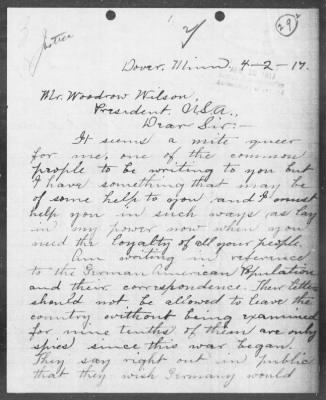 29
Justice
Dover, Minn, 4-2-17.
Mr. Woodrow Wilson,
President, U.S.A.,
Dear Sir:-
It seems a mite queer
for me, one of the common
people to be writing to you but
I have something that may be
of some help to you and I must
help you in such ways as lay
in my power now when you
need the loyalty of all your people.
Am writing in reference
to the German American Population
and their correspondence. Their letters
should not be allowed to leave the
country without being examined
for nine tenths of them are only
spies since this war began.
They say right out in public
that they wish Germany would